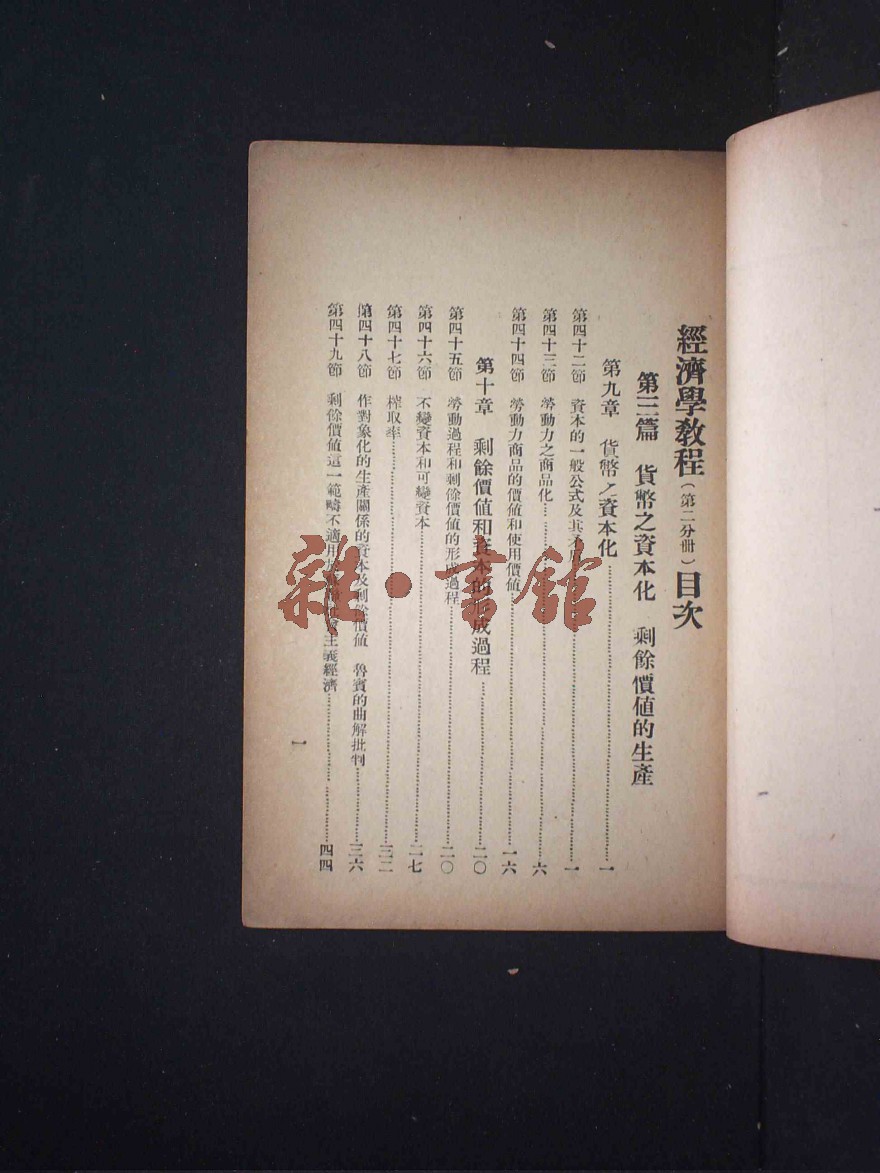 經濟學教程（第二分册）目次
第三篇　貨幣之資本化　剩餘價値的生產
第九章　貨幣之資本化……一
第四十二節　資本的一般公式及其矛盾……一
第四十三節　勞動力之商品化……六
第四十四節　勞動力商品的價値和使用價値……一六
第十章　剩餘價値和資本的形成過程……二〇
第四十五節　勞動過程和剩餘價値的形成過程……二〇
第四十六節　不變資本和可變資本……二七
第四十七節　榨取率……三二
第四十八節　作對象化的生產關係的資本及剩餘價値　魯賓的曲解批判……三六
第四十九節　剩餘價値這一範疇不適用於　主義經濟……四四
一
雜·書館